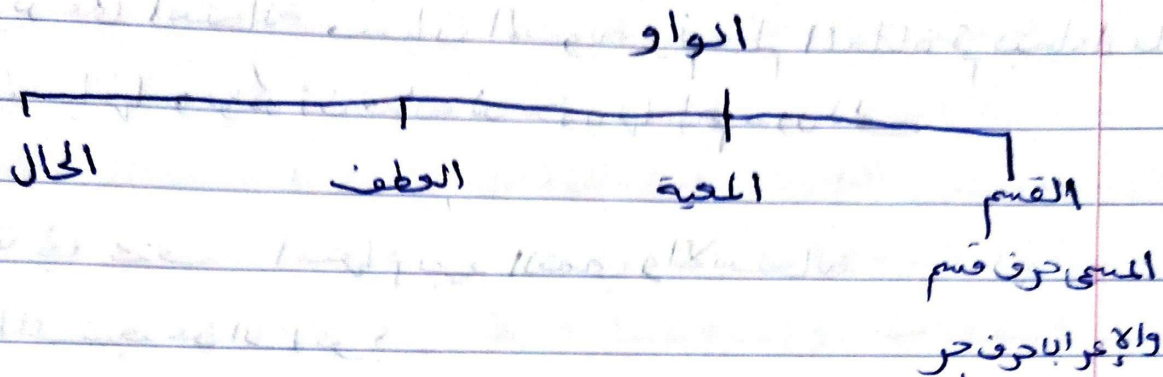 الواو
القسم المعية العطف الحال
المسمى حرف قسم
والإعرابا حرف جر